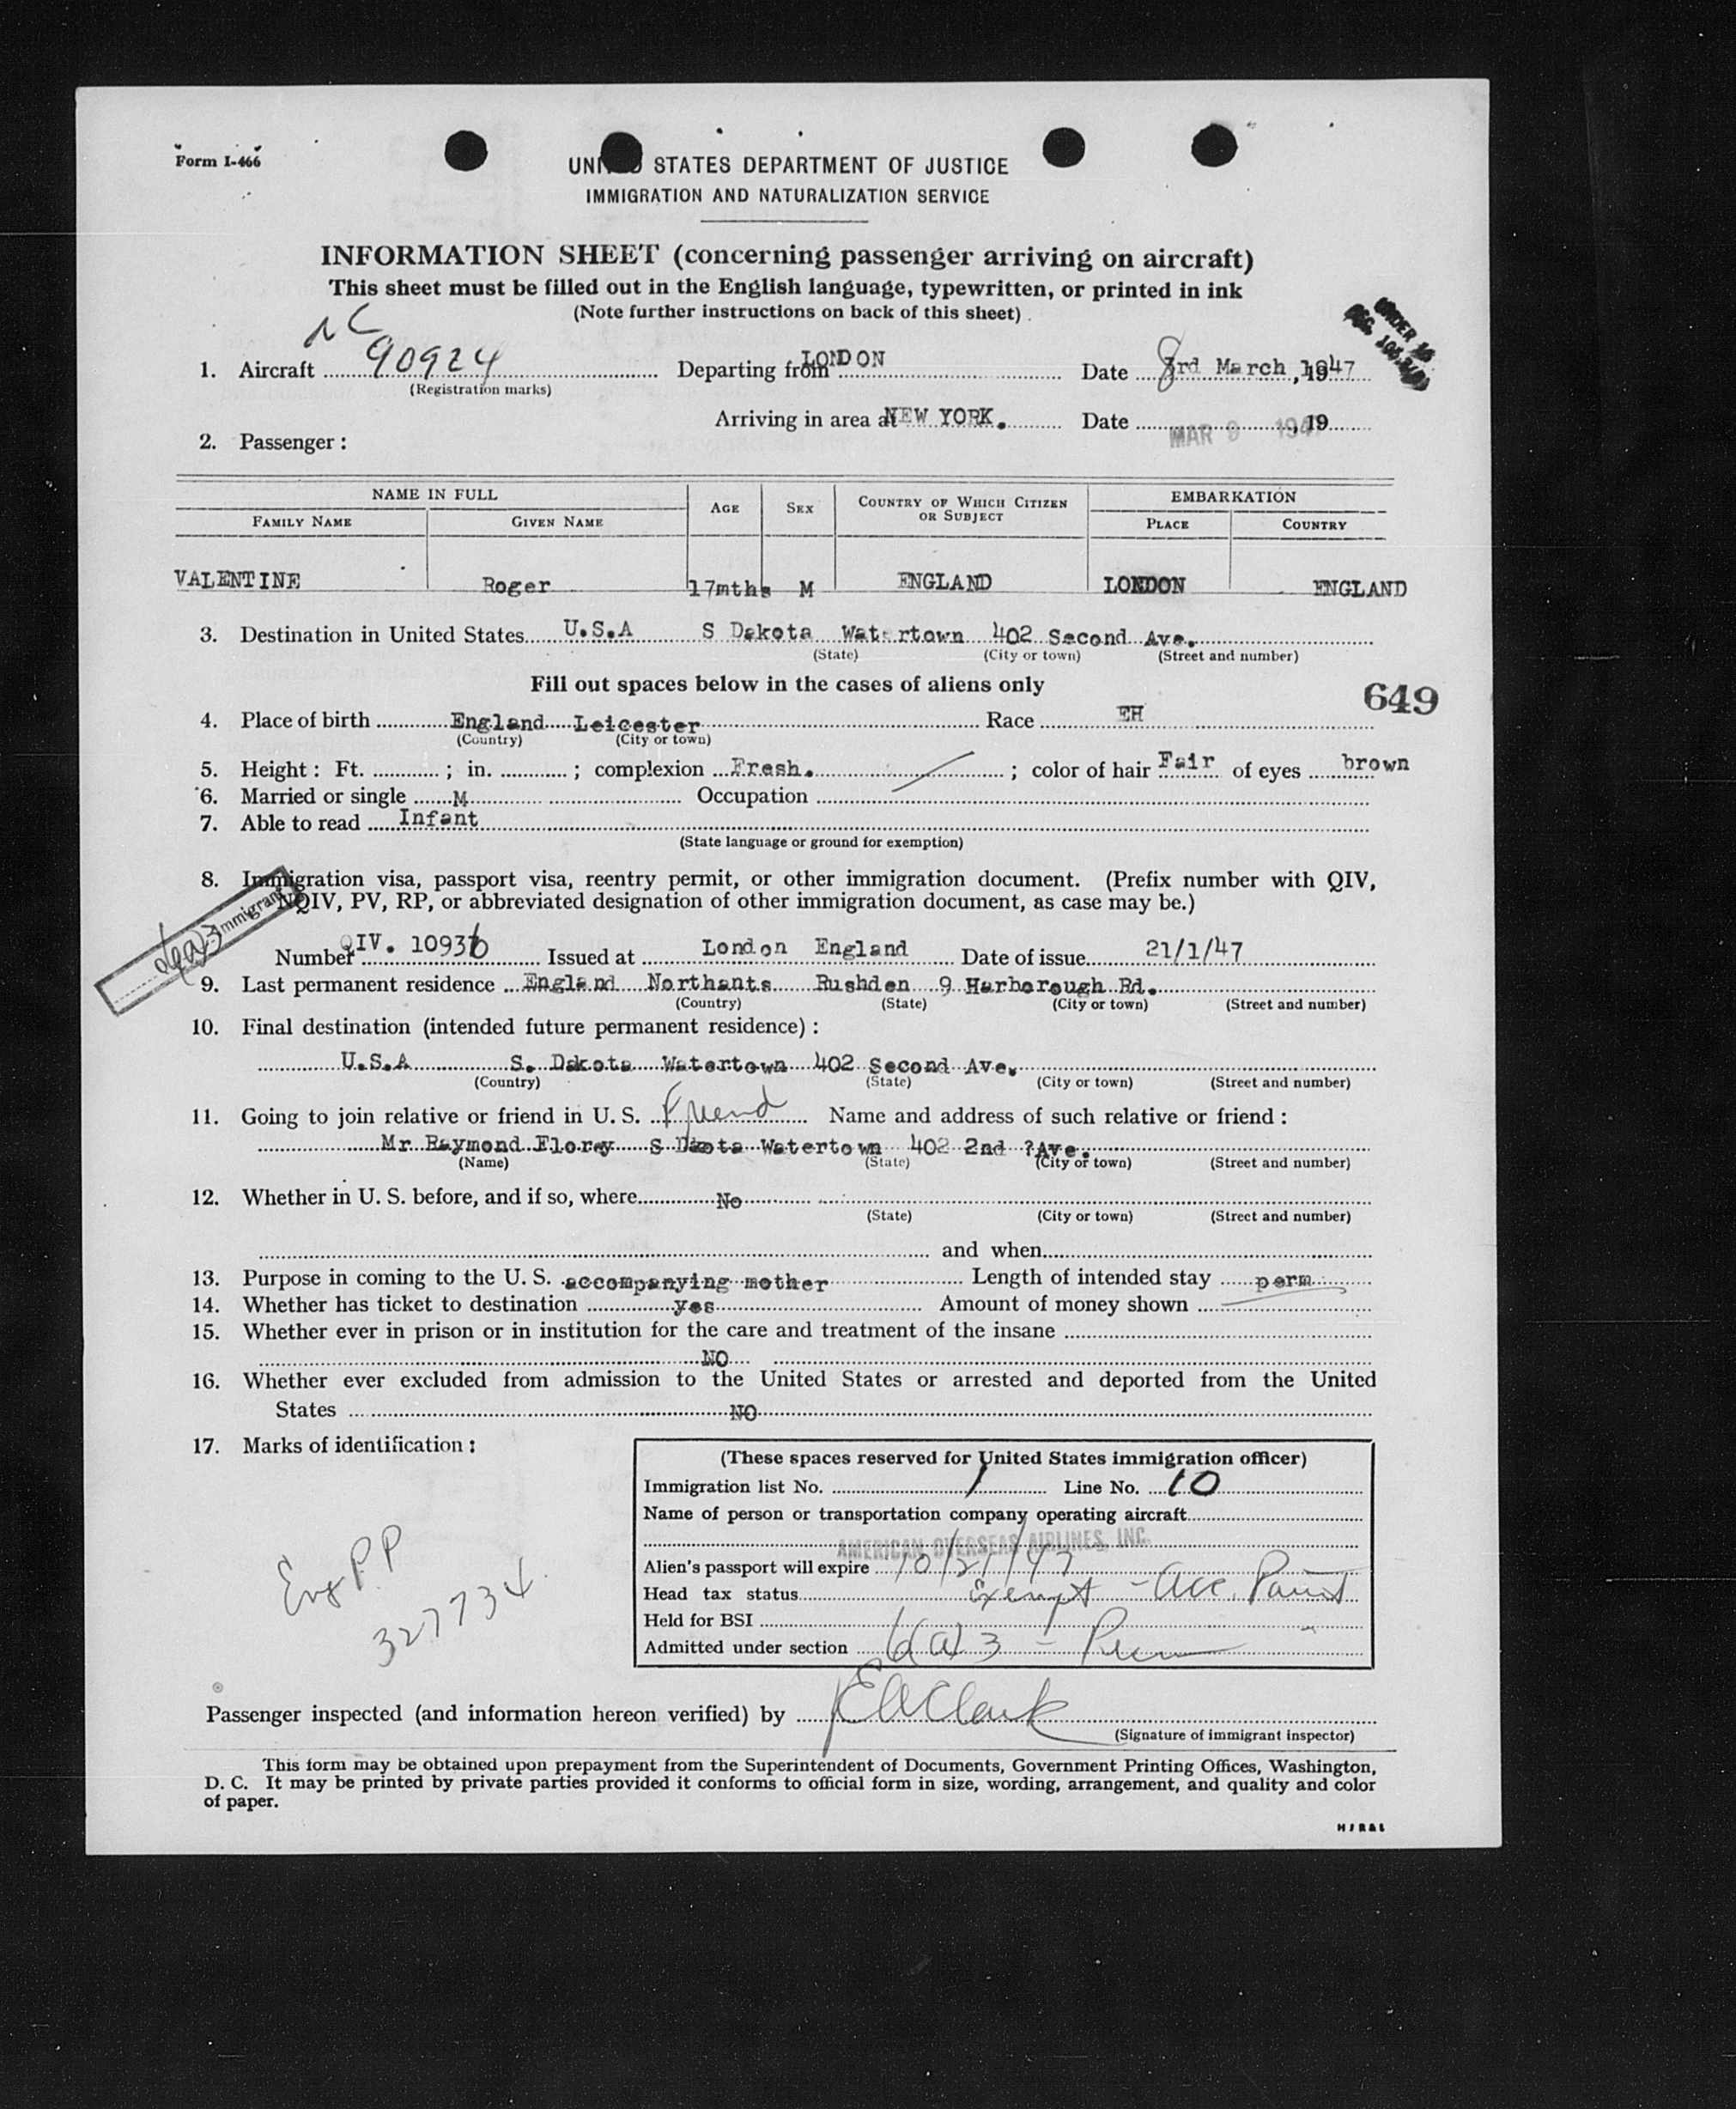 Form I-466
UNITED STATES DEPARTMENT OF JUSTICE
IMMIGRATION AND NATURALIZATION SERVICE
INFORMATION SHEET (concerning passenger arriving on aircraft)
This sheet must be filled out in the English language, typewritten, or printed in ink
(Note further instructions on back of this sheet)
UNDER 16
NC
1. Aircraft 90924 Departing from LONDON Date 8rd March, 1947
(Registration marks)
Arriving in area at NEW YORK. Date MAR 9 194, 19
2. Passenger:
NAME IN FULL AGE SEX COUNTRY OF WHICH CITIZEN OR SUBJECT EMBARKATION
FAMILY NAME GIVEN NAME PLACE COUNTRY
VALENTINE Roger 17mths M ENGLAND LONDON ENGLAND
3. Destination in United States U.S.A S Dakota Watertown 402 Second Ave.
(State) (City or town) (Street and number)
Fill out spaces below in the cases of aliens only
649
4. Place of birth England Leicester Race EH
(Country) (City or town)
5. Height: Ft. ; in. ; complexion Fresh. ; color of hair Fair of eyes brown
6. Married or single M Occupation
7. Able to read Infant
(State language or ground for exemption)
8. Immigration visa, passport visa, reentry permit, or other immigration document. (Prefix number with QIV,
NQIV, PV, RP, or abbreviated designation of other immigration document, as case may be.)
Immigrant
6(a)3
Number QIV. 10936 Issued at London England Date of issue 21/1/47
9. Last permanent residence England Northants Rushden 9 Harborough Rd.
(Country) (State) (City or town) (Street and number)
10. Final destination (intended future permanent residence):
U.S.A S. Dakota Watertown 402 Second Ave.
(Country) (State) (City or town) (Street and number)
11. Going to join relative or friend in U. S. Friend Name and address of such relative or friend:
Mr Raymond Florey S Dkota Watertown 402 2nd ?Ave.
(Name) (State) (City or town) (Street and number)
12. Whether in U. S. before, and if so, where No
(State) (City or town) (Street and number)
and when
13. Purpose in coming to the U. S. accompanying mother Length of intended stay perm
14. Whether has ticket to destination yes Amount of money shown
15. Whether ever in prison or in institution for the care and treatment of the insane
NO
16. Whether ever excluded from admission to the United States or arrested and deported from the United
States NO
17. Marks of identification:
Eng PP
327734
(These spaces reserved for United States immigration officer)
Immigration list No. 1 Line No. 10
Name of person or transportation company operating aircraft
AMERICAN OVERSEAS AIRLINES, INC.
Alien's passport will expire 10/21/47
Head tax status Exempt - Acc. Parent
Held for BSI
Admitted under section 6(a)3 - Perm
Passenger inspected (and information hereon verified) by EAClark
(Signature of immigrant inspector)
This form may be obtained upon prepayment from the Superintendent of Documents, Government Printing Offices, Washington,
D. C. It may be printed by private parties provided it conforms to official form in size, wording, arrangement, and quality and color
of paper.